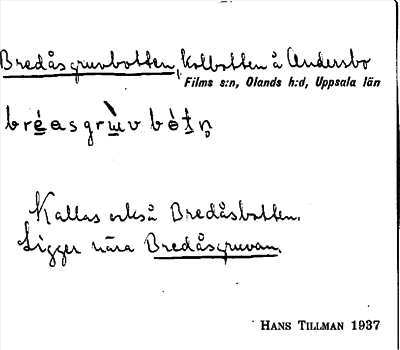 Bredåsgruvbotten, Kolbotten å Andersbo
Films s:n, Olands h:d, Uppsala län
Kallas också Bredåsbotten.
Ligger nära Bredåsgruvan.
HANS TILLMAN 1937